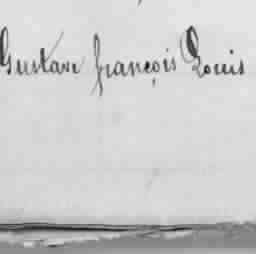 Gustave François Louis